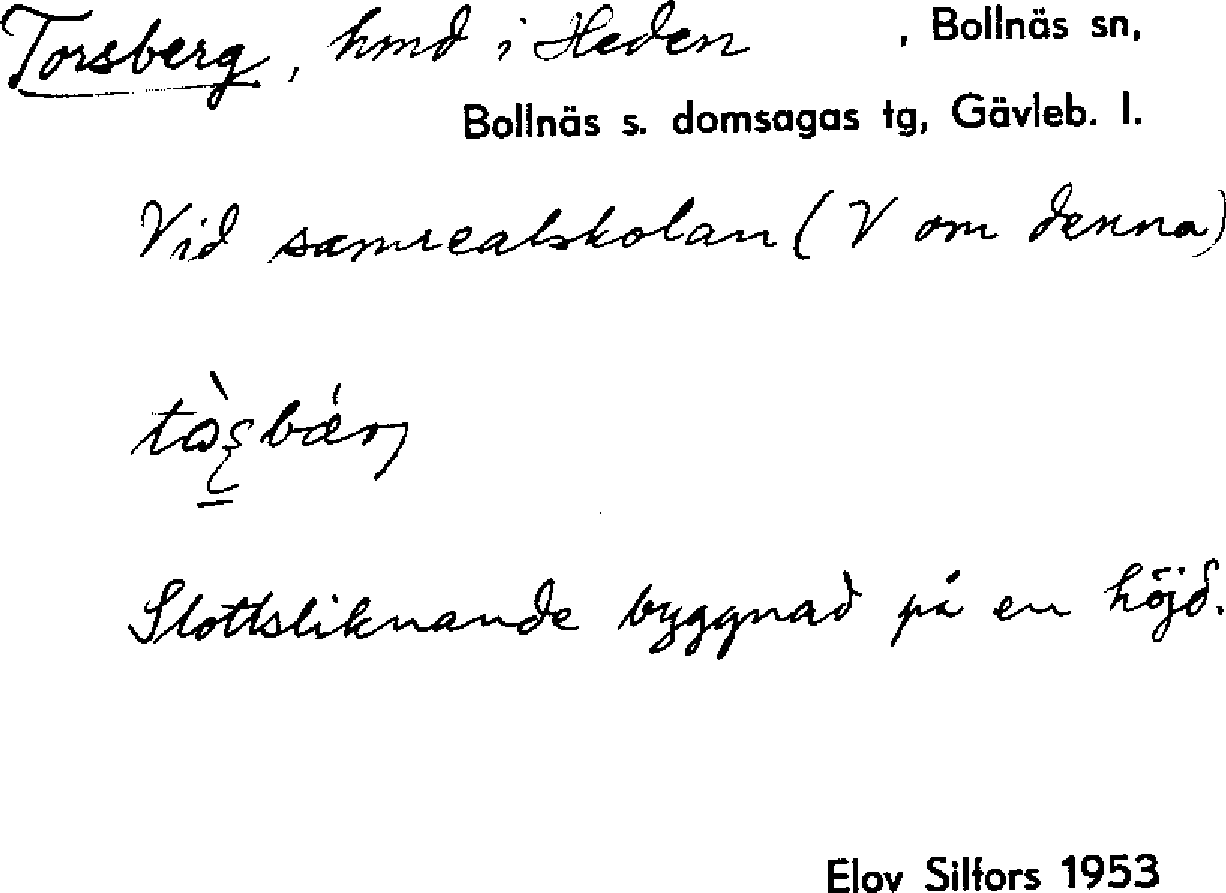 Torsberg, hmd i Heden , Bollnäs sn,
Bollnäs s. domsagas tg, Gävleb. l.
Vid samrealskolan (V om denna)
Slottsliknande byggnad på en höjd.
Elov Silfors 1953